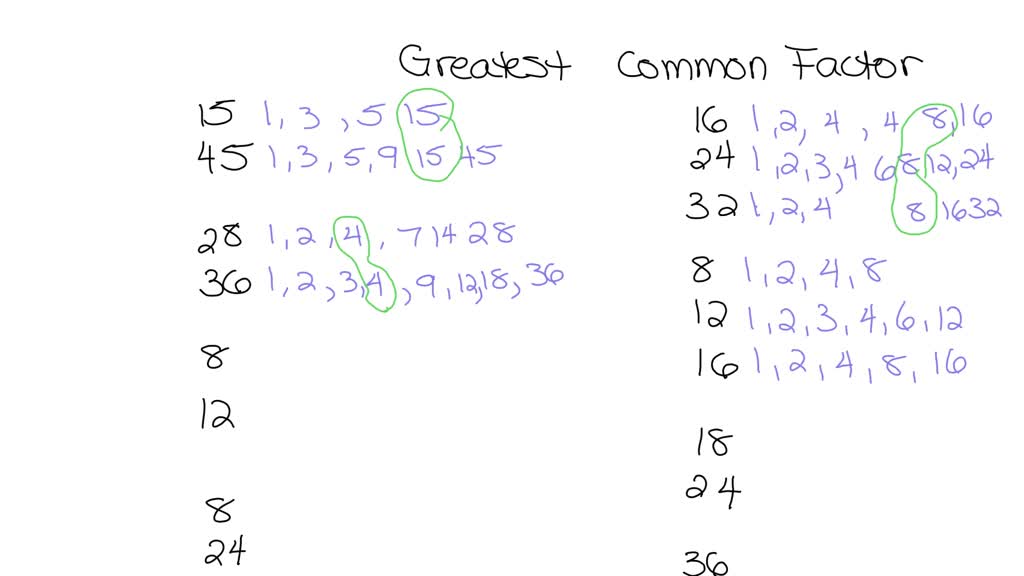 Greatest Common Factor
15 1, 3, 5 15,
45 1, 3, 5, 9 15 45
28 1, 2, 4, 7 14 28
36 1, 2, 3, 4, 9, 12, 18, 36
8
12
8
24
16 1, 2, 4, 4 8, 16
24 1, 2, 3, 4 6 8 12, 24
32 1, 2, 4 8 16 32
8 1, 2, 4, 8
12 1, 2, 3, 4, 6, 12
16 1, 2, 4, 8, 16
18
24
36